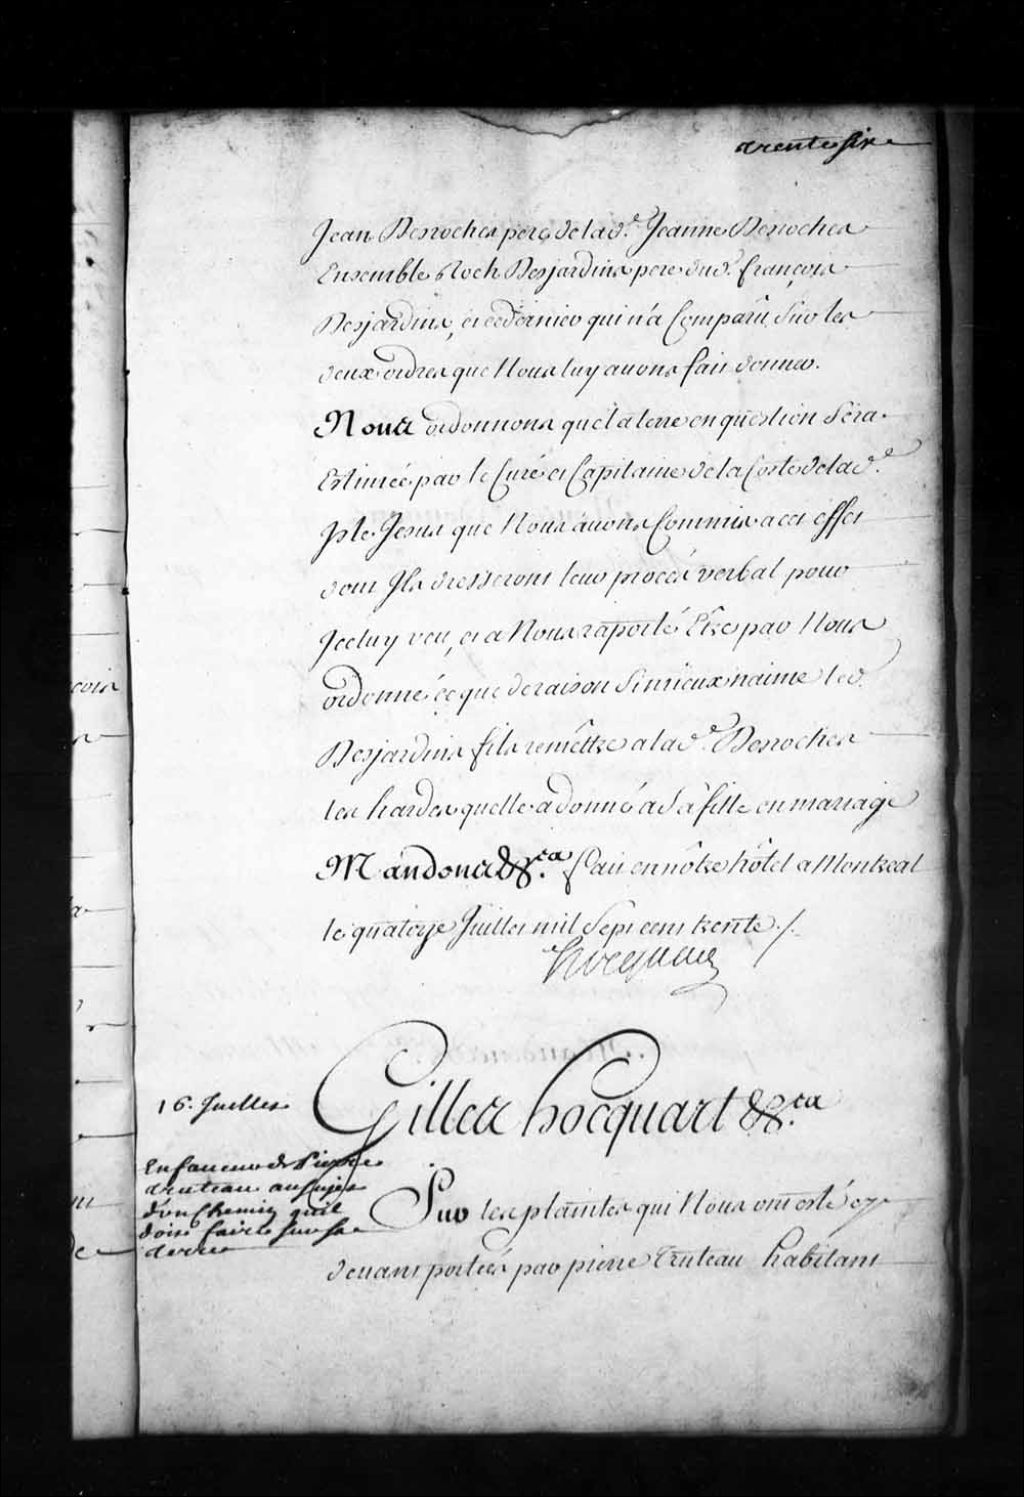 trente six
Jean Desroches pere de lad.e Jeanne Desroches
Ensemble Roch Desjardins pere dud. françois
Desjardins, et ce dernier qui n'a Comparu, Sur les
deux ordres que Nous luy avons fait donner.
Nous ordonnons que la terre en question Sera
Estimée par le Curé et Capitaine de la Coste de lad.e
Isle Jesus que Nous avons Commis a cet effet
dont Ils dresseront leur procés verbal pour
Iceluy veu, et a Nous raporté Etre par Nous
ordonné ce que de raison Si mieux n'aime led.
Desjardins fils remêttre a lad.e Desroches
les hardes quelle a donné a Sa fille en mariage
Mandons &c.ta fait en nôtre hôtel a Montreal
le quatorze Juillet mil Sept cent trente ./.
Hocquart
Gilles hocquart &c.ta
16. Juillet
En faveur de Pierre
truteau au sujet
d'un Chemin quil
doit faire sur sa
terre
Sur les plaintes qui Nous ont esté cy
devant portées par pierre truteau habitant
çois
m
de